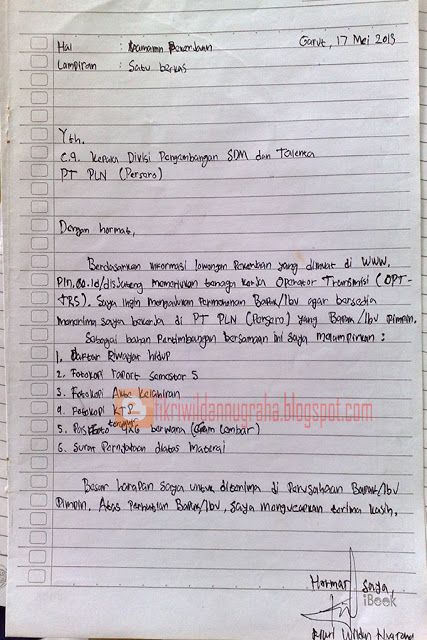 Hal : Lamaran Pekerjaan Garut, 17 Mei 2013
Lampiran : Satu berkas
Yth.
c.q. Kepala Divisi Pengembangan SDM dan Talenta
PT PLN (Persero)
Dengan hormat,
Berdasarkan informasi lowongan Pekerjaan yang dimuat di WWW.
Pln.co.id/disjateng memerlukan tenaga kerja Operator Transmisi (OPT-
TRS). Saya ingin mengajukan Permohonan Bapak/Ibu agar bersedia
menerima saya bekerja di PT PLN (Persero) yang Bapak/Ibu Pimpin.
Sebagai bahan Pertimbangan bersamaan ini saya melampirkan :
1. Daftar Riwayat hidup
2. Fotokopi raport semester 5
3. Fotokopi Akte Kelahiran
4. Fotokopi KTP
fikriwildannugraha.blogspot.com
5. Pas Foto terbaru 4x6 berwarna (Enam Lembar)
6. Surat Pernyataan diatas Materai
Besar harapan saya untuk diterima di Perusahaan Bapak/Ibu
Pimpin. Atas Perhatian Bapak/Ibu, saya mengucapkan terima kasih.
Hormat saya,
iBook
Fikri Wildan Nugraha